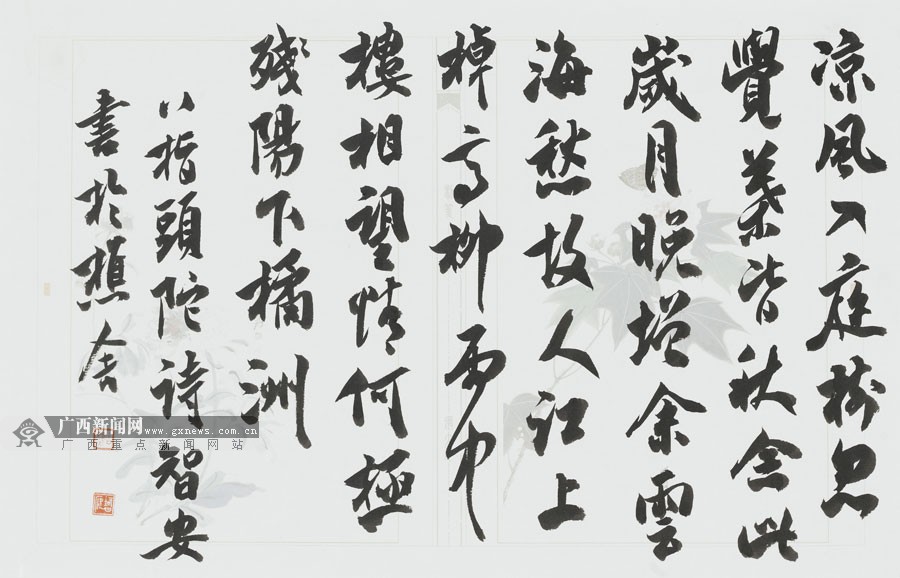 凉風入庭樹忽
覺葉皆秋念此
歲月晚增余雲
海愁故人江上
棹高柳雨中
樓相望情何極
殘陽下橘洲
八指頭陀詩智安
書於蕉舍
广西新闻网
www.gxnews.com.cn
广西重点新闻网站